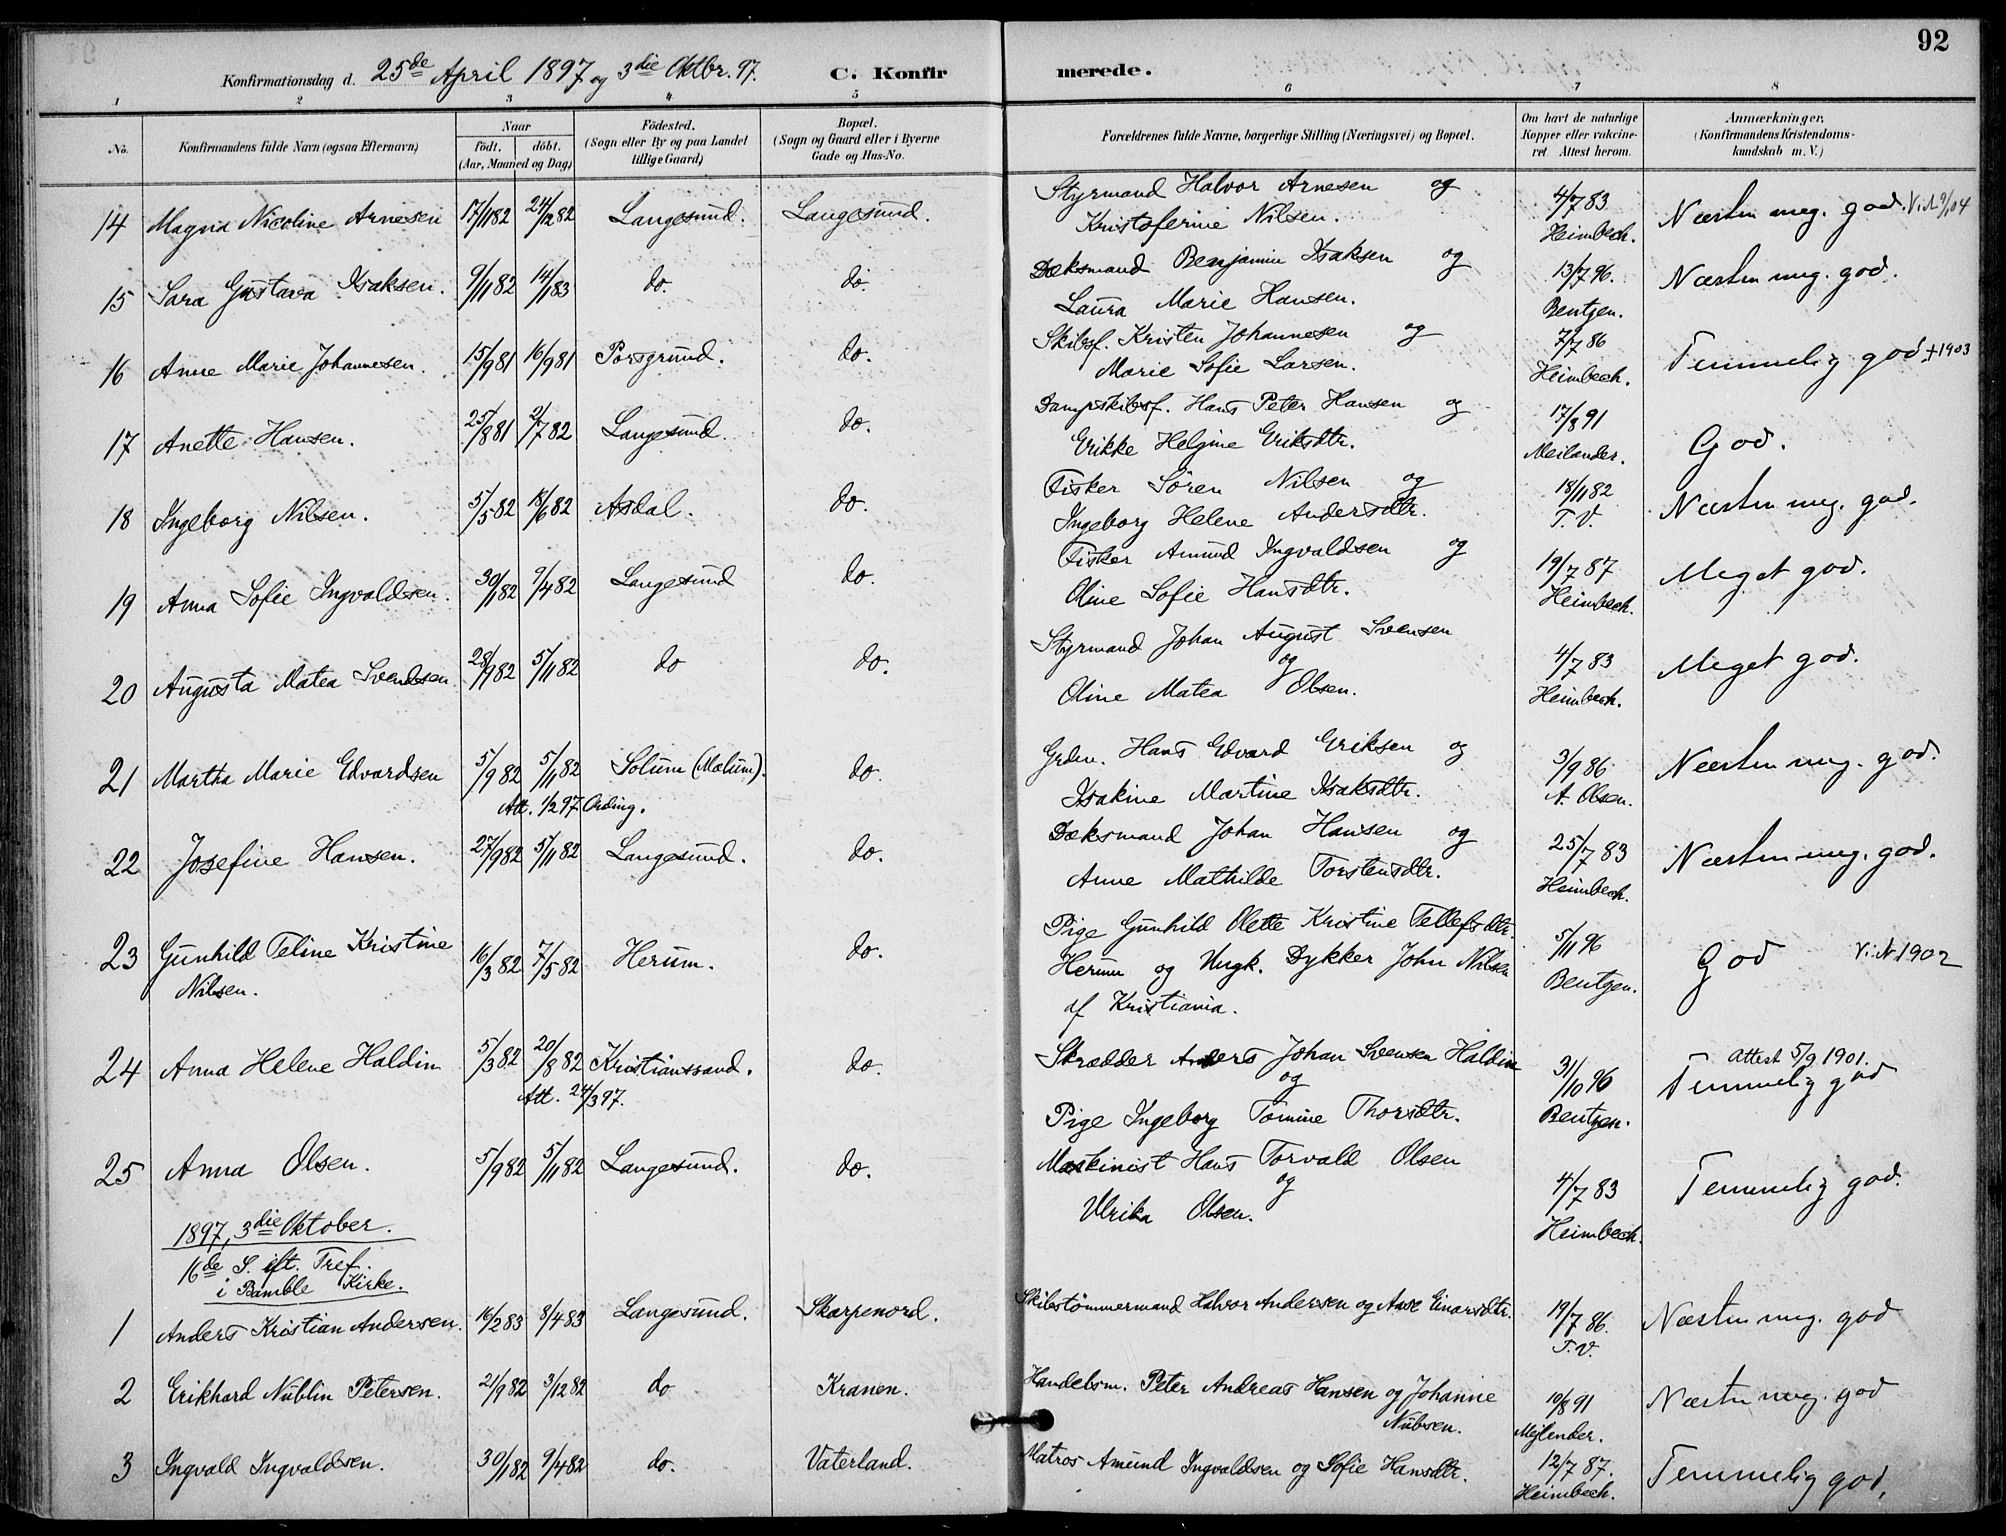 92
Konfirmationsdag d. 25de April 1897 og 3die Oktbr. 97. C. Konfirmerede.
1 2 3 4 5 6 7 8
No. Konfirmandens fulde Navn (ogsaa Efternavn) Naar født. døbt. (Aar, Maaned og Dag) Fødested. (Sogn eller By og paa Landet tillige Gaard) Bopæl. (Sogn og Gaard eller i Byerne Gade og Hus-No. Forældrenes fulde Navne, borgerlige Stilling (Næringsvei) og Bopæl. Om havt de naturlige Kopper eller vakcineret Attest herom. Anmærkninger, (Konfirmandens Kristendomskundskab m. V.)
14 Magna Nicoline Arnesen 17/11 82 24/12 82 Langesund. Langesund. Styrmand Halvor Arnesen og 4/7 83 Næsten meg. god.
Kristoferine Nilsen. Heimbech.
15 Sara Gustava Isaksen. 9/11 82 14/1 83 do. do. Dæksmand Benjamin Isaksen og 13/7 96. Næsten meg. god.
Laura Marie Hansen. Bentzen.
16 Anne Marie Johannesen. 15/9 81 16/9 81 Porsgrund. do. Skibsf. Kristen Johannesen og 7/7 86 Temmelig god +1903
Marie Sofie Larsen. Heimbech.
17 Anette Hansen. 25/8 81 2/7 82 Langesund. do. Dampskibsf. Hans Peter Hansen og 17/8 91 God.
Erikke Helgine Eriksdtr. Meilænder.
18 Ingeborg Nilsen. 5/5 82 18/6 82 Asdal. do. Fisker Søren Nilsen og 18/11 82 Næsten meg. god.
Ingeborg Helene Andersdtr. T. V.
19 Anna Sofie Ingvaldsen. 30/1 82 9/4 82 Langesund do. Fisker Amund Ingvaldsen og 19/7 87 Meget god.
Oline Sofie Hansdtr. Heimbech.
20 Augusta Matea Svendsen 28/9 82 5/11 82 do do. Styrmand Johan August Svensen 4/7 83 Meget god.
og
Oline Matea Olsen. Heimbech.
21 Martha Marie Edvardsen 5/9 82 5/11 82 Solum (Mælum). do. Grdm. Hans Edvard Eriksen og 3/9 86 Næsten meg. god.
Att. 1/2 97 Ording. Isakine Martine Isaksdtr. A. Olsen.
22 Josefine Hansen. 27/9 82 5/11 82 Langesund. do. Dæksmand Johan Hansen og 25/7 83 Næsten meg. god.
Anne Mathilde Torstensdtr. Heimbech.
23 Gunhild Teline Kristine 16/3 82 7/5 82 Herum. do. Pige Gunhild Olette Kristine Tellefsdtr. 5/11 96 God V. N. 1902
Nilsen. Herum og Ungk. Dykker John Nilsen Bentzen.
af Kristiania.
24 Anna Helene Haldin 5/3 82 20/8 82 Kristianssand. do. Skrædder Anders Johan Svensen Haldin 31/10 96 Attest 5/9 1901. Temmelig god
Att. 24/3 97. og
Pige Ingeborg Tomine Thorsdtr. Bentzen.
25 Anna Olsen. 5/9 82 5/11 82 Langesund. do. Maskinist Hans Torvald Olsen 4/7 83 Temmelig god.
og
Ulrika Olsen. Heimbech.
1897, 3die Oktober.
16de S. eft. Tref.
i Bamble Kirke.
1 Anders Kristian Andersen. 16/2 83 8/4 83 Langesund. Skarpenord. Skibstømmermand Halvor Andersen og Aase Einarsdtr. 19/7 86. Næsten meg. god
T. V.
2 Erikhard Nüblin Petersen. 21/9 82 3/12 82 do Kranen. Handelsm. Peter Andreas Hansen og Johanne 10/8 91 Næsten meg. god
Nübsen. Mejlender.
3 Ingvald Ingvaldsen. 30/1 82 9/4 82 do. Vaterland. Matros Amund Ingvaldsen og Sofie Hansdtr. 12/7 87. Temmelig god.
Heimbech.